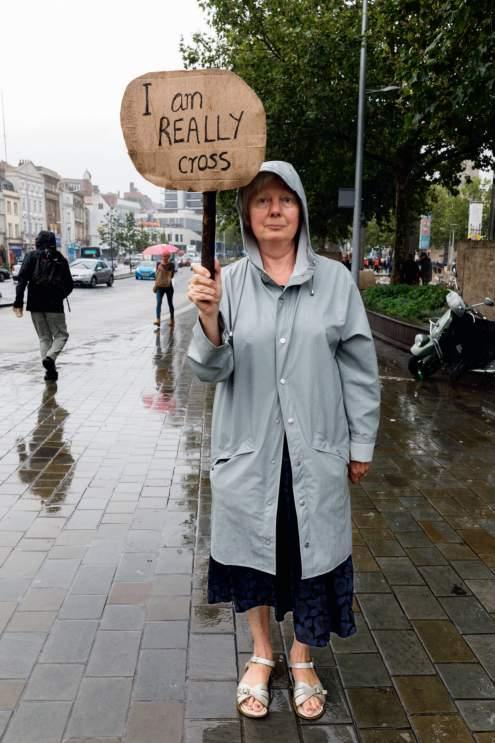 I am
REALLY
cross